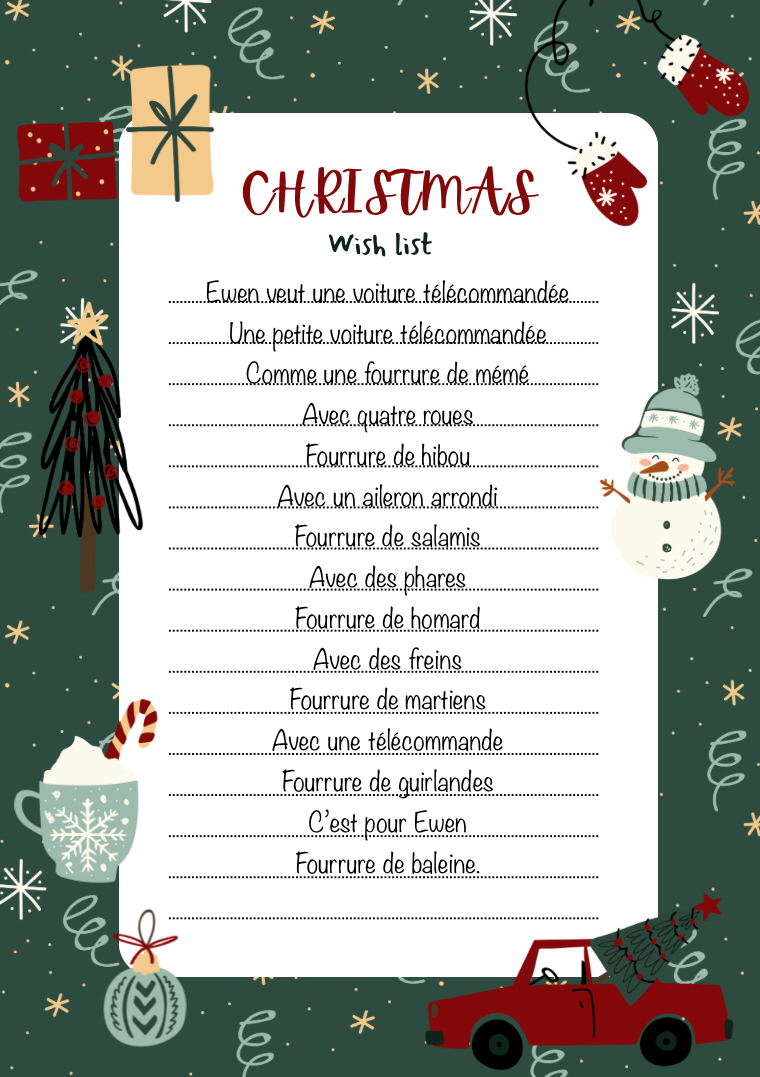 CHRISTMAS
Wish list
Ewen veut une voiture télécommandée
Une petite voiture télécommandée
Comme une fourrure de mémé
Avec quatre roues
Fourrure de hibou
Avec un aileron arrondi
Fourrure de salamis
Avec des phares
Fourrure de homard
Avec des freins
Fourrure de martiens
Avec une télécommande
Fourrure de guirlandes
C'est pour Ewen
Fourrure de baleine.